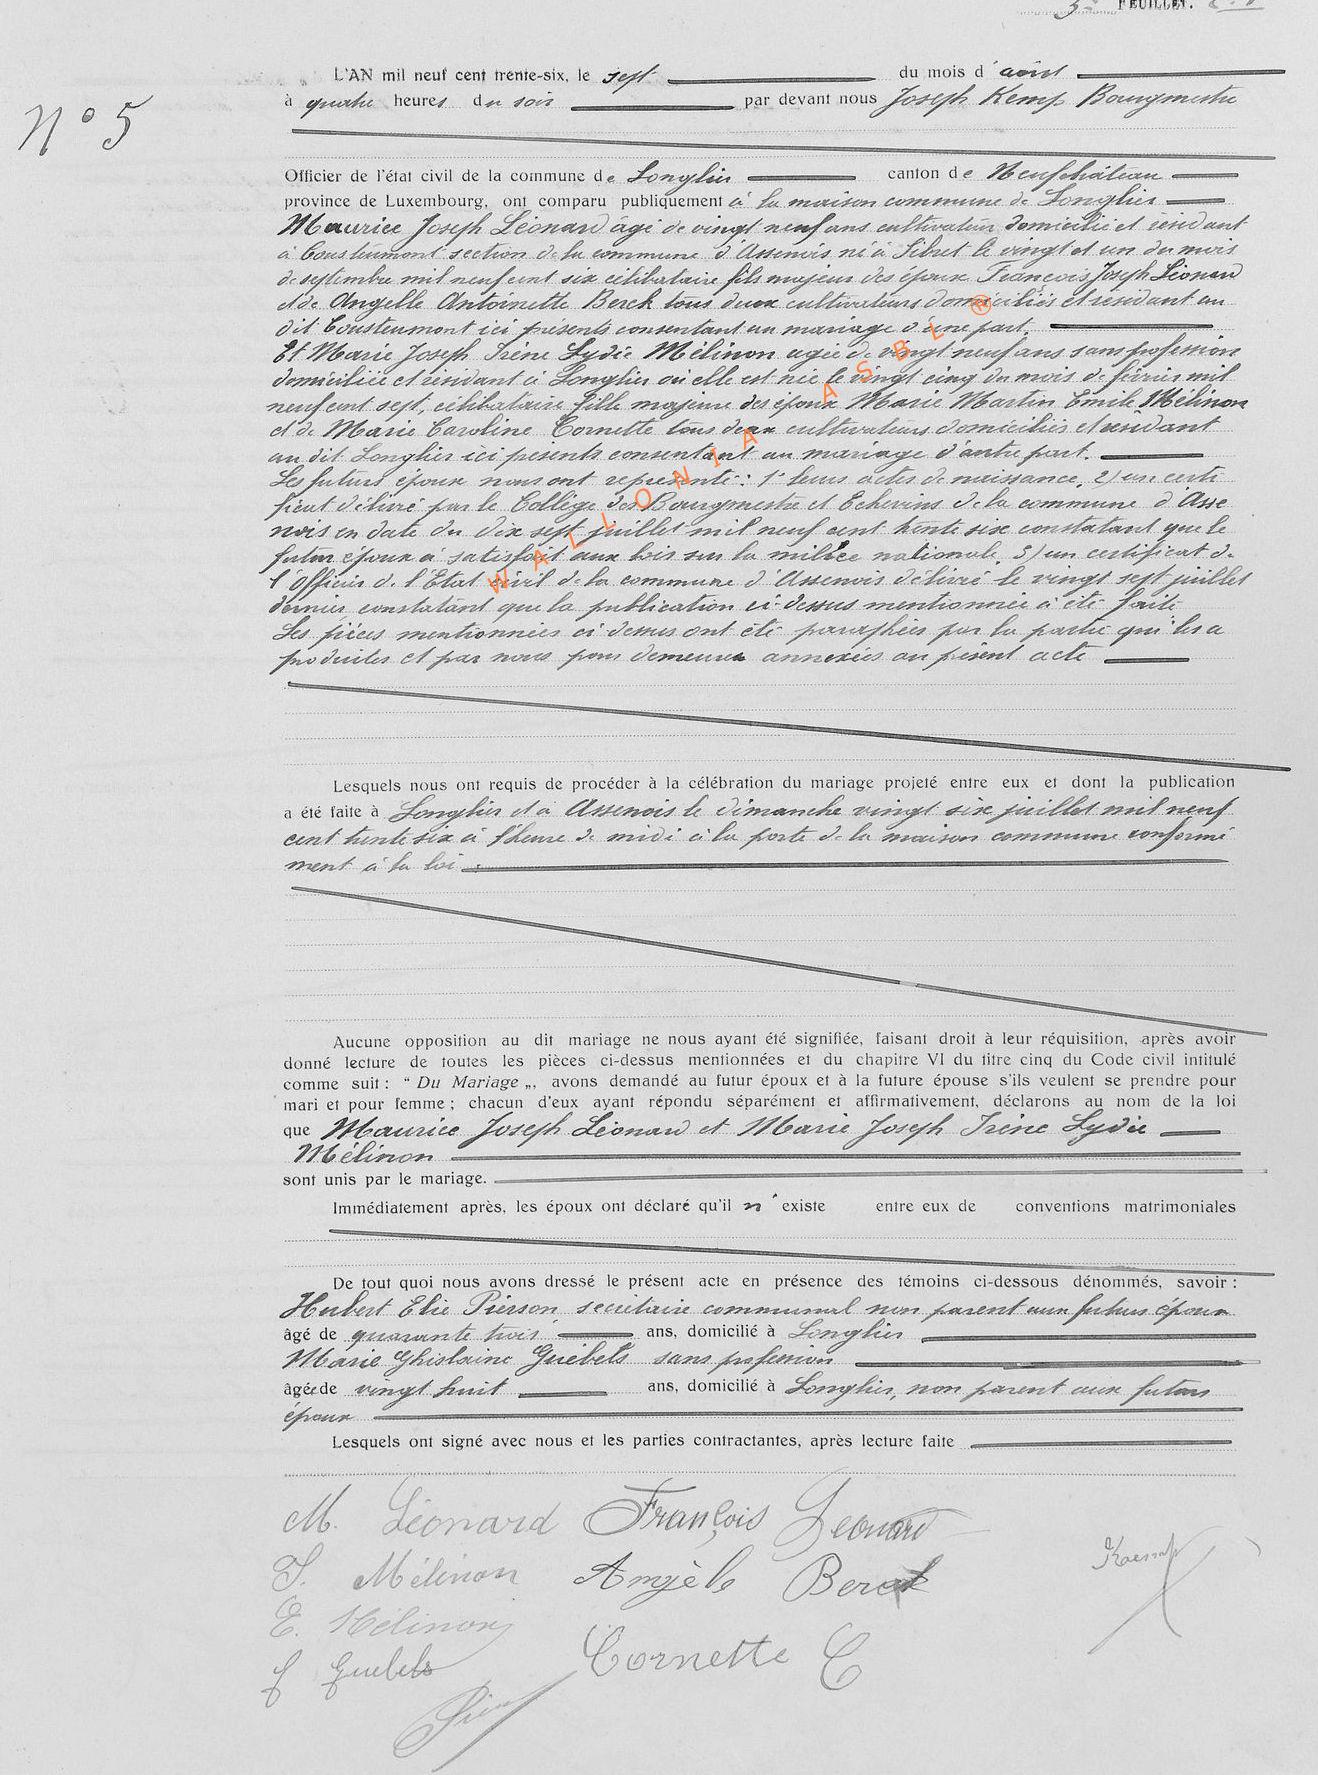 FEUILLET.
N° 5
L'AN mil neuf cent trente-six, le sept du mois d'août
à quatre heures du soir par devant nous Joseph Kemp Bourgmestre
Officier de l'état civil de la commune de Longlier canton de Neufchâteau
province de Luxembourg, ont comparu publiquement à la maison commune de Longlier
Maurice Joseph Léonard âgé de vingt neuf ans cultivateur domicilié et résidant
à Cousteumont section de la commune d'Assenois né à Sibret le vingt et un du mois
de septembre mil neuf cent six célibataire fils majeur des époux François Joseph Léonard
et de Angelle Antoinette Berck tous deux cultivateurs domiciliés et résidant au
dit Cousteumont ici présents consentant au mariage d'une part.
Et Marie Joseph Irène Lydie Mélinon agée de vingt neuf ans sans profession
domiciliée et résidant à Longlier où elle est née le vingt cinq du mois de février mil
neuf cent sept, célibataire fille majeure des époux Marie Martin Emile Mélinon
et de Marie Caroline Cornette tous deux cultivateurs domiciliés et résidant
au dit Longlier ici présents consentant au mariage d'autre part.
Les futurs époux nous ont représenté : 1° leurs actes de naissance, 2) un certi
ficat délivré par le Collège des Bourgmestre et Echevins de la commune d'Asse
nois en date du dix sept juillet mil neuf cent trente six constatant que le
futur époux a satisfait aux lois sur la milice nationale. 3) un certificat de
l'Officier de l'Etat civil de la commune d'Assenois délivré le vingt sept juillet
dernier constatant que la publication ci-dessus mentionnée a été faite
Les pièces mentionnées ci dessus ont été paraphées par la partie qui les a
produites et par nous pour demeurer annexées au présent acte
WALLONIA ASBL ®
Lesquels nous ont requis de procéder à la célébration du mariage projeté entre eux et dont la publication
a été faite à Longlier et à Assenois le dimanche vingt six juillet mil neuf
cent trente six à l'heure de midi à la porte de la maison commune conformé
ment à la loi.
Aucune opposition au dit mariage ne nous ayant été signifiée, faisant droit à leur réquisition, après avoir
donné lecture de toutes les pièces ci-dessus mentionnées et du chapitre VI du titre cinq du Code civil intitulé
comme suit : “ Du Mariage „, avons demandé au futur époux et à la future épouse s'ils veulent se prendre pour
mari et pour femme ; chacun d'eux ayant répondu séparément et affirmativement, déclarons au nom de la loi
que Maurice Joseph Léonard et Marie Joseph Irène Lydie
Mélinon
sont unis par le mariage.
Immédiatement après, les époux ont déclaré qu'il n'existe entre eux de conventions matrimoniales
De tout quoi nous avons dressé le présent acte en présence des témoins ci-dessous dénommés, savoir :
Hubert Elie Pierson secrétaire communal non parent aux futurs époux
âgé de quarante trois ans, domicilié à Longlier
Marie Ghislaine Guébels sans profession
âgée de vingt huit ans, domicilié à Longlier, non parent aux futurs
époux
Lesquels ont signé avec nous et les parties contractantes, après lecture faite
M. Léonard François Léonard
I. Mélinon Angèle Berck
E. Mélinon
Cornette C
Guebels